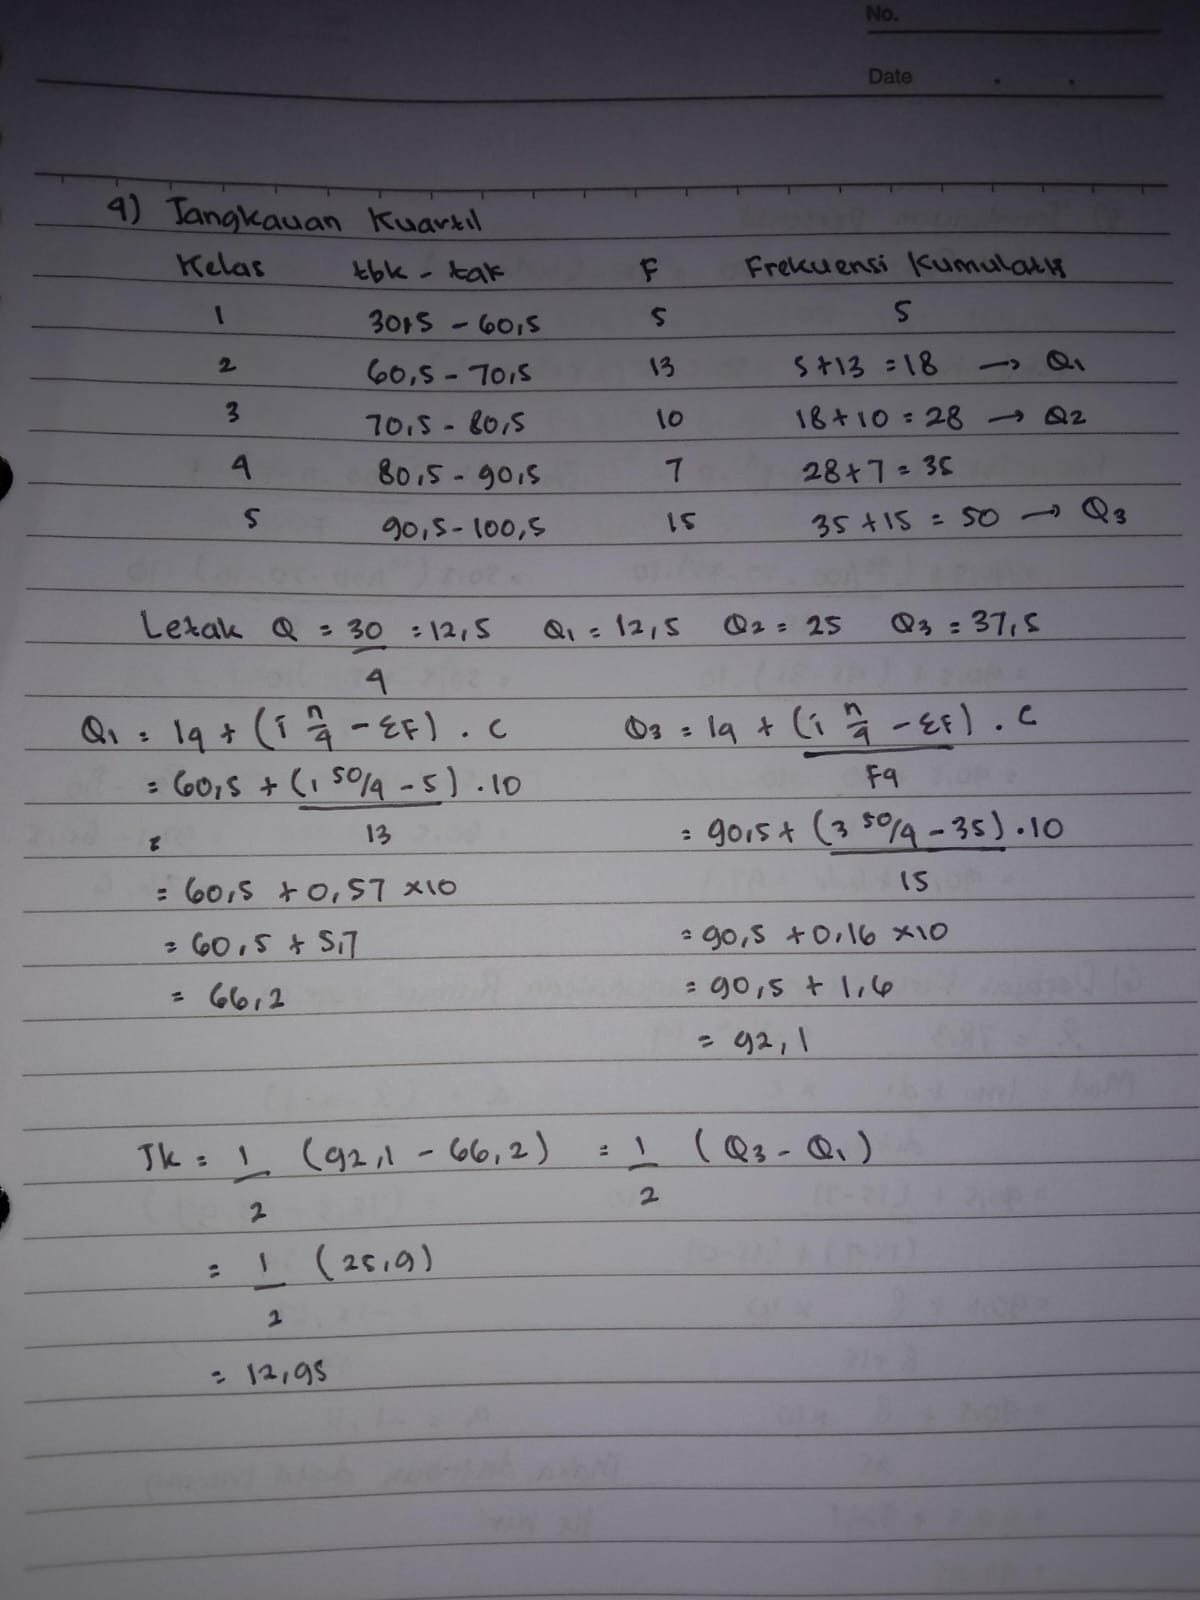 No.
Date
4) Jangkauan Kuartil
Kelas tbk - tak F Frekuensi Kumulatif
1 30,5 - 60,5 5 5
2 60,5 - 70,5 13 5+13 = 18 → Q1
3 70,5 - 80,5 10 18+10 = 28 → Q2
4 80,5 - 90,5 7 28+7 = 35
5 90,5 - 100,5 15 35+15 = 50 → Q3
Letak Q = 30/4 = 12,5 Q1 = 12,5 Q2 = 25 Q3 = 37,5
Q1 = lq + (i n/4 - ΣF) . C
= 60,5 + (1 50/4 - 5) . 10
13
= 60,5 + 0,57 x10
= 60,5 + 5,7
= 66,2
Q3 = lq + (i n/4 - ΣF) . C
Fq
= 90,5 + (3 50/4 - 35) . 10
15
= 90,5 + 0,16 x10
= 90,5 + 1,6
= 92,1
Jk = 1/2 (92,1 - 66,2) = 1/2 (Q3 - Q1)
= 1/2 (25,9)
= 12,95